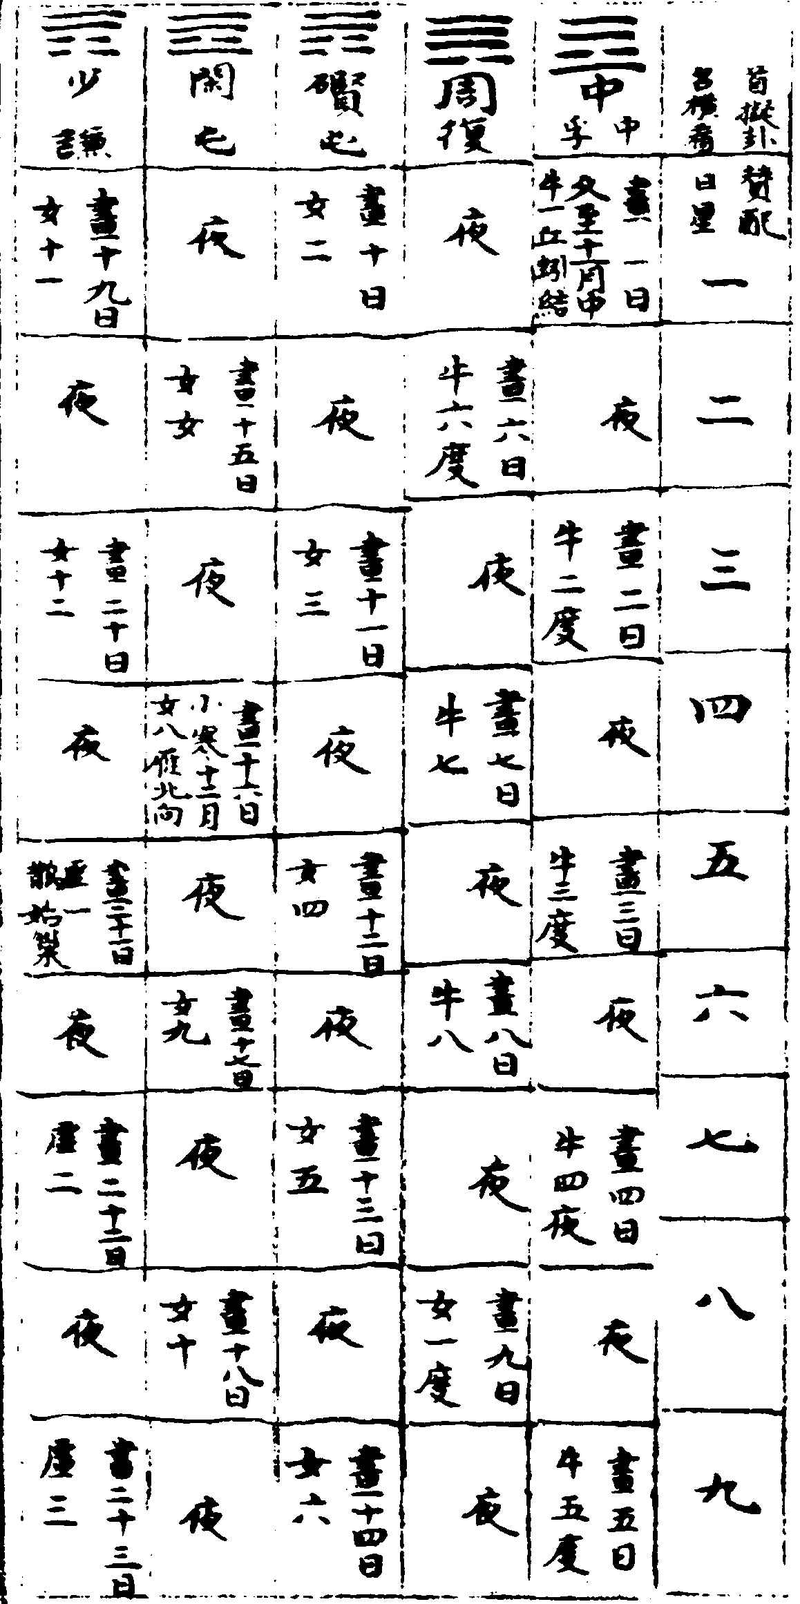 首擬卦
名橫看
贊配
日星
一
二
三
四
五
六
七
八
九
中
中
孚
晝一日
冬至十一月中
牛一丘蚓結
夜
晝二日
牛二度
夜
晝三日
牛三度
夜
晝四日
牛四夜
夜
晝五日
牛五度
周
復
夜
晝六日
牛六度
夜
晝七日
牛七
夜
晝八日
牛八
夜
晝九日
女一度
夜
礥
屯
晝十日
女二
夜
晝十一日
女三
夜
晝十二日
女四
夜
晝十三日
女五
夜
晝十四日
女六
閑
屯
夜
晝十五日
女女
夜
晝十六日
小寒十二月
女八雁北向
夜
晝十七日
女九
夜
晝十八日
女十
夜
少
謙
晝十九日
女十一
夜
晝二十日
女十二
夜
晝二十一日
虛一
始巢
夜
晝二十二日
虛二
夜
晝二十三日
虛三